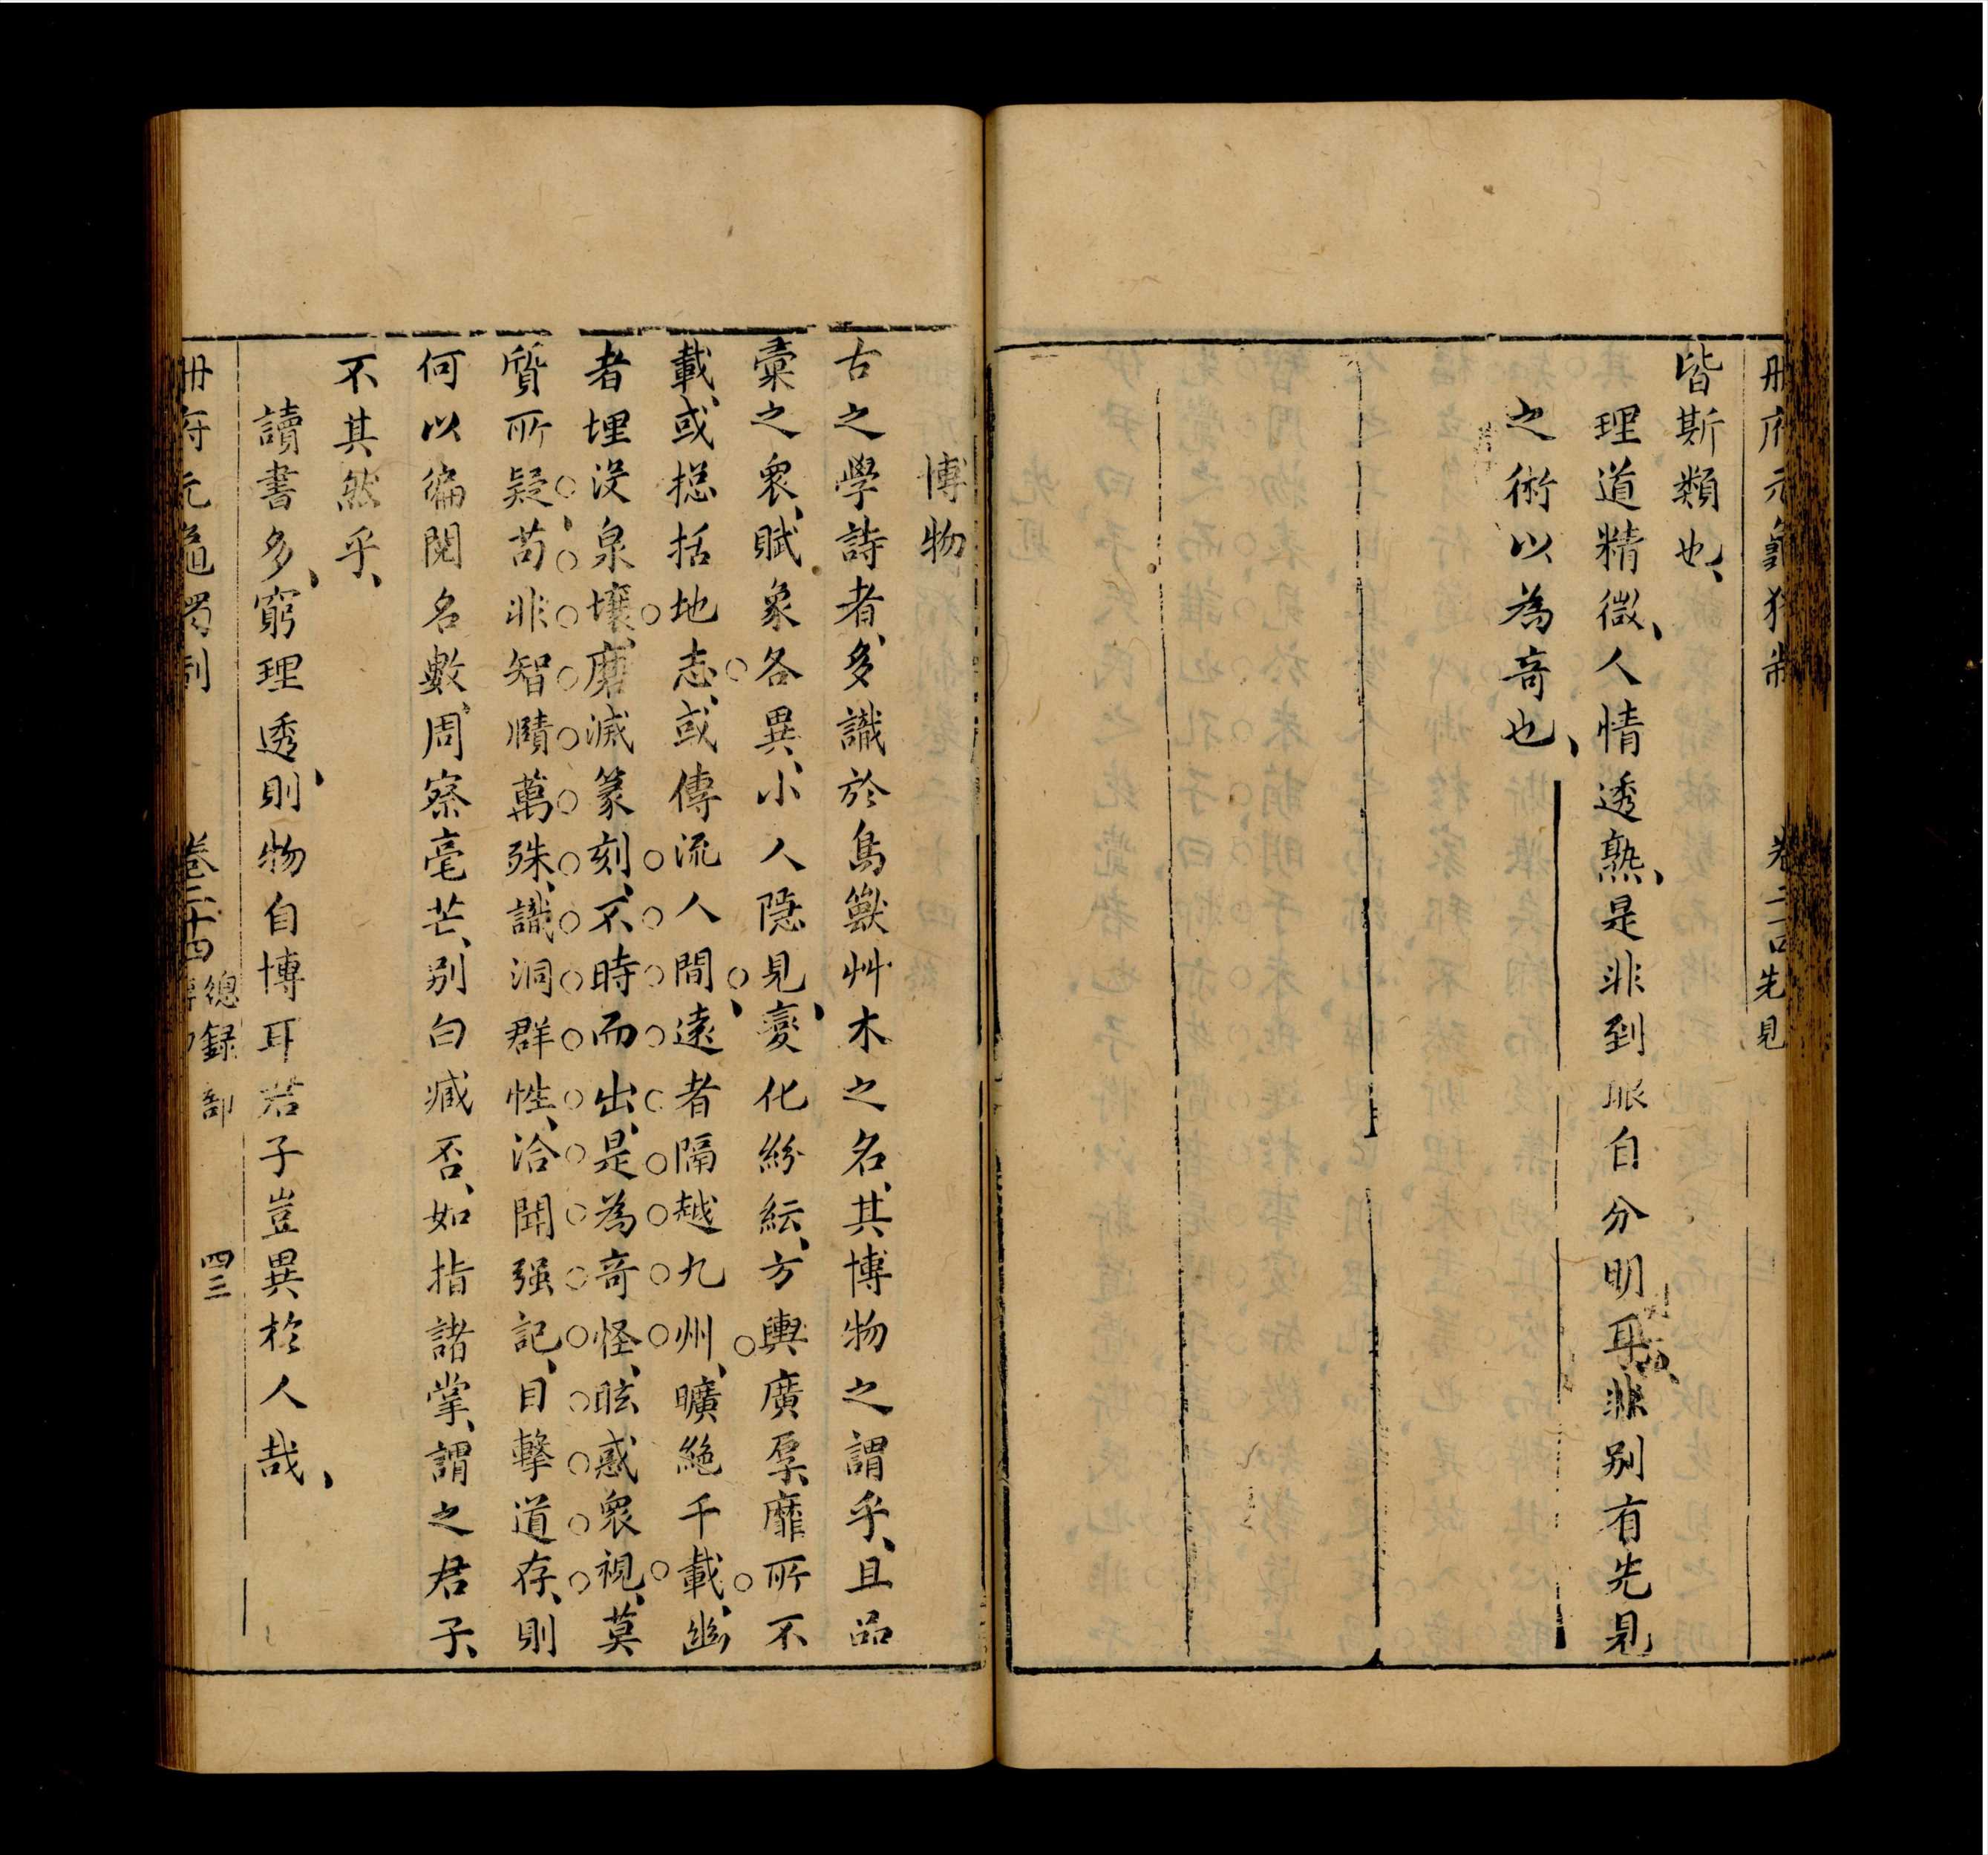 冊府元龜獨制 卷二十四 先見
皆斯類也、
理道精微、人情透熟、是非到眼自分明耳、非别有先見
之術以為奇也、
博物
古之學詩者、多識於鳥獸艸木之名、其博物之謂乎、且品
彙之衆、賦象各異、小人隱見、變化紛紜、方輿廣孕、靡所不
載、或揔括地志、或傳流人間、遠者隔越九州、曠絶千載、幽
者埋没泉壤、磨滅篆刻、不時而出、是為奇怪、眩惑衆視、莫
質所疑、苟非智賾萬殊、識洞群性、洽聞强記、目擊道存、則
何以徧閱名數、周察毫芒、别白臧否、如指諸掌、謂之君子、
不其然乎、
讀書多、窮理透、則物自博耳、君子豈異於人哉、
冊府元龜獨制 卷二十四 總録部 博物 四三